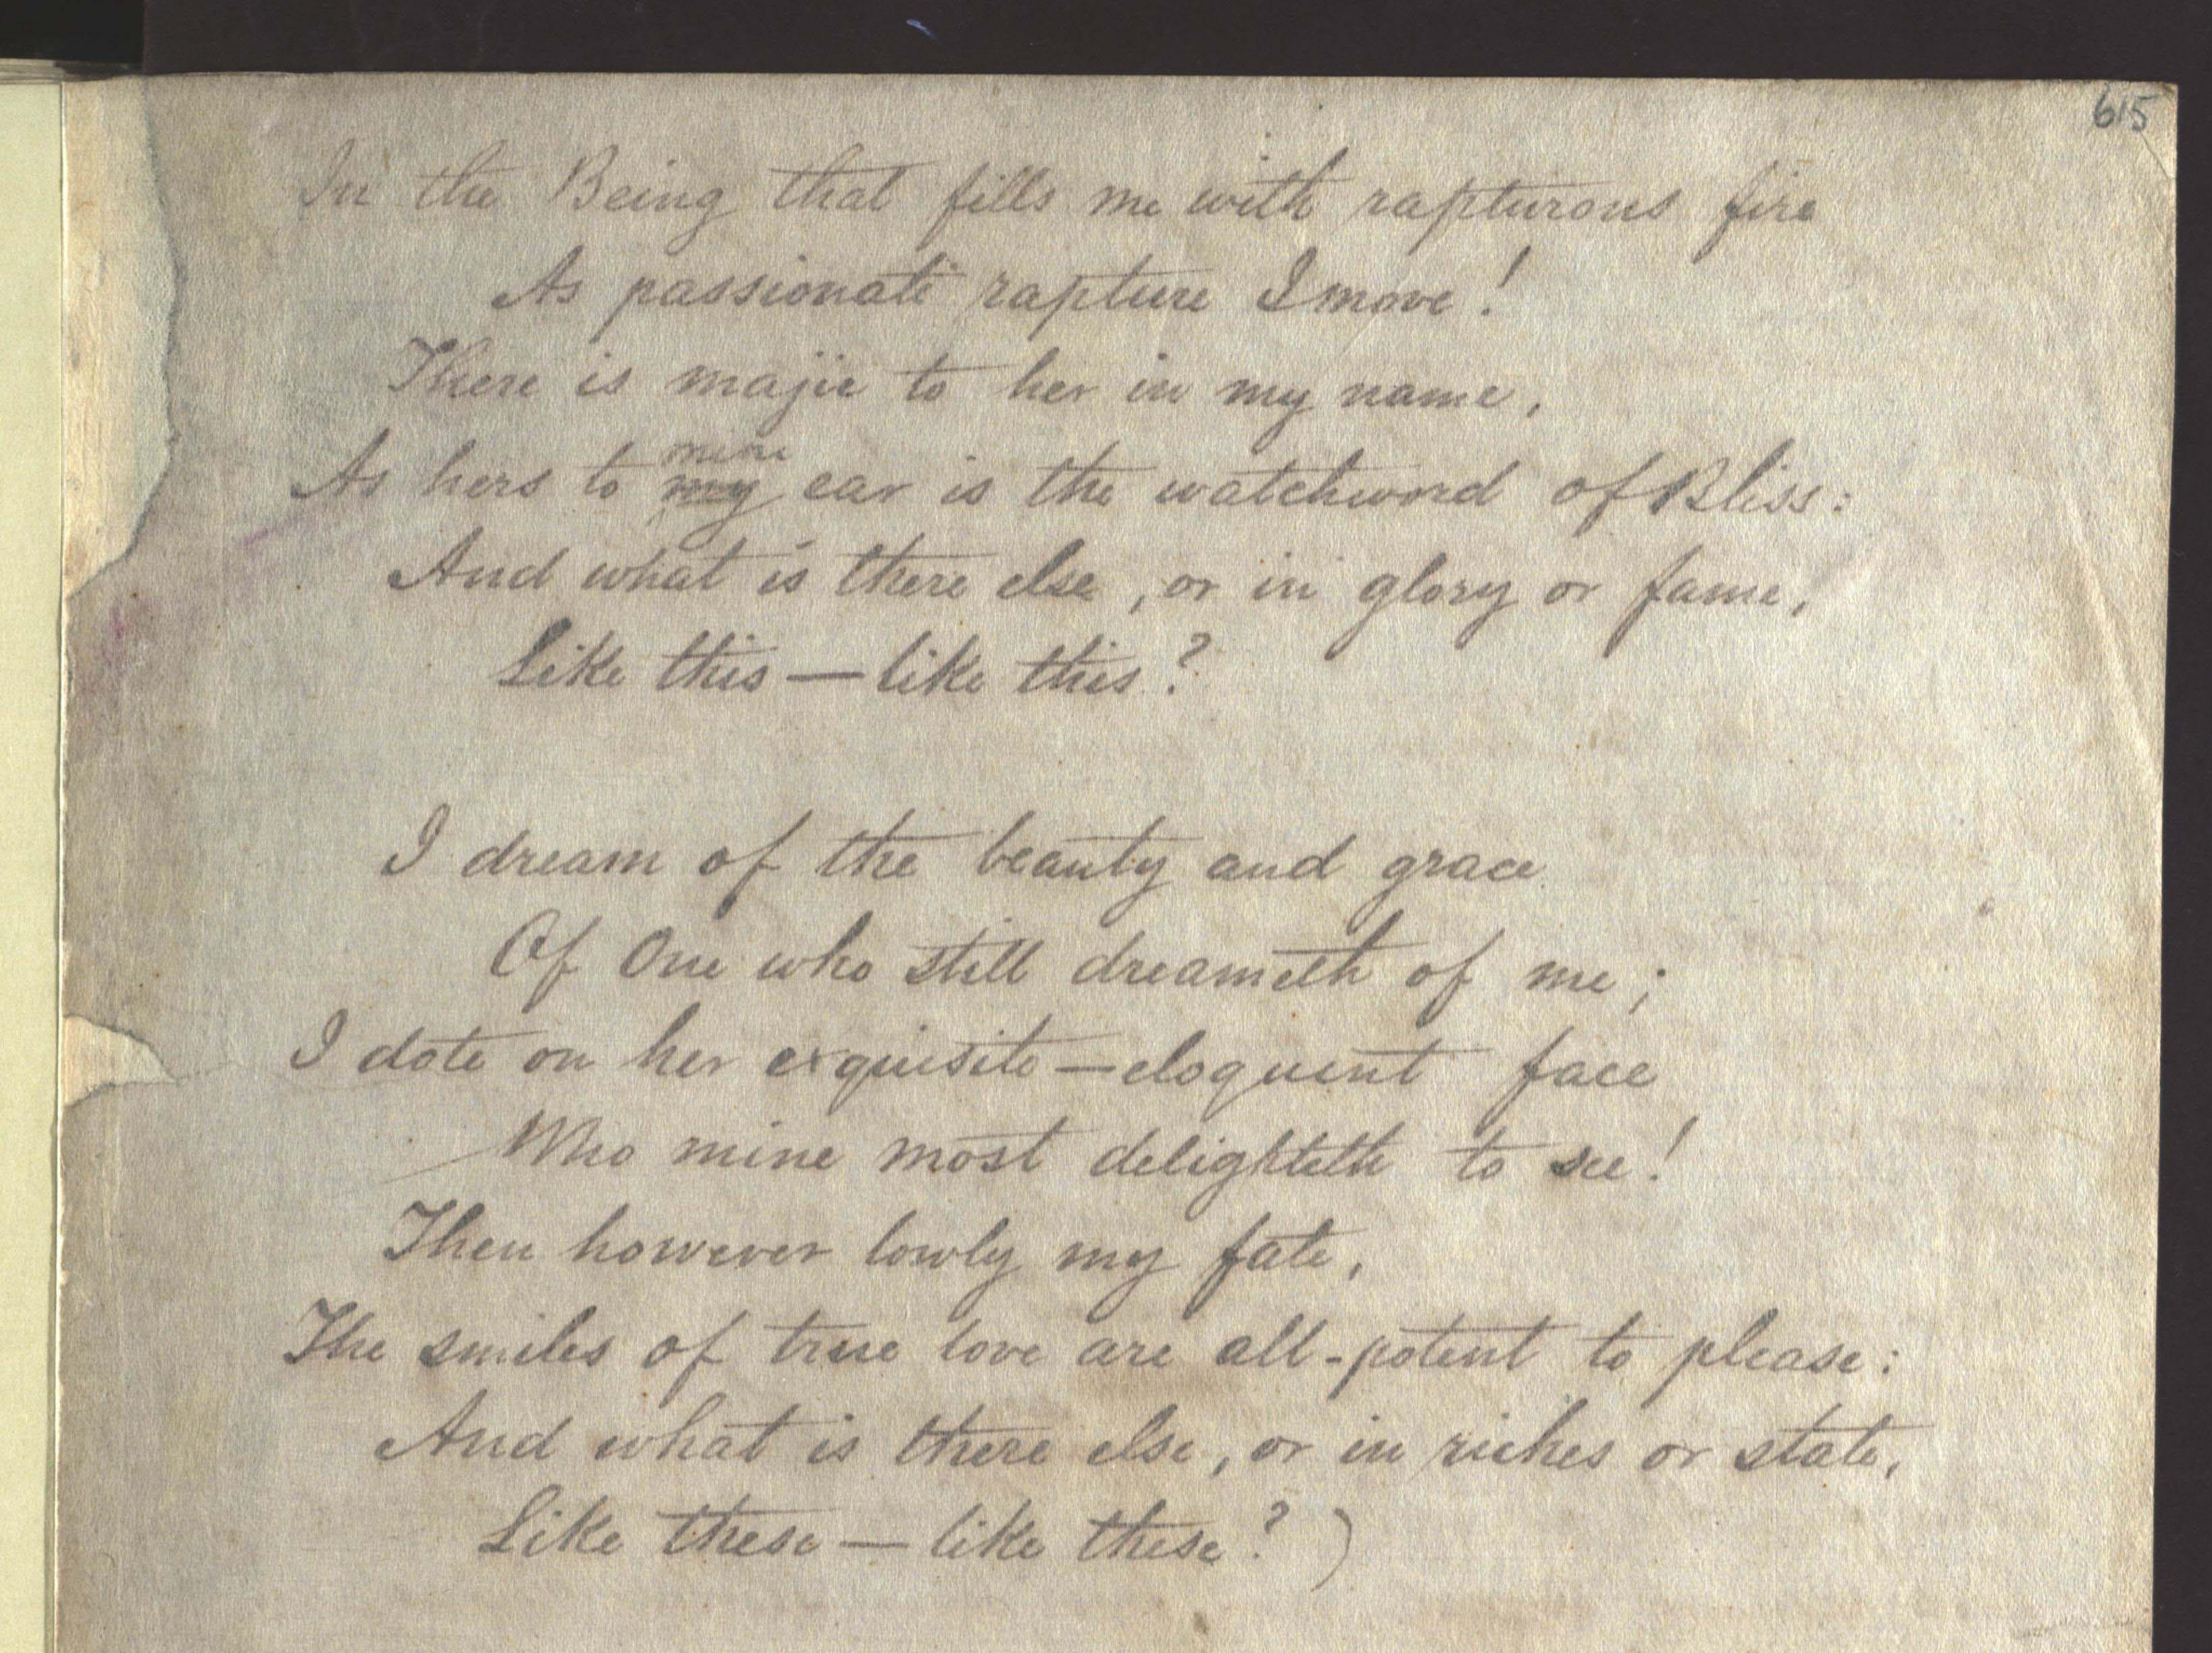 615
In the Being that fills me with rapturous fire
As passionate rapture I move!
There is majic to her in my name,
mine
As hers to my ear is the watchword of Bliss:
And what is there else, or in glory or fame,
Like this — like this?
I dream of the beauty and grace
Of One who still dreameth of me;
I dote on her exquisite — eloquent face
Who mine most delighteth to see!
Then however lowly my fate,
The smiles of true love are all-potent to please:
And what is there else, or in riches or state,
Like these — like these? )